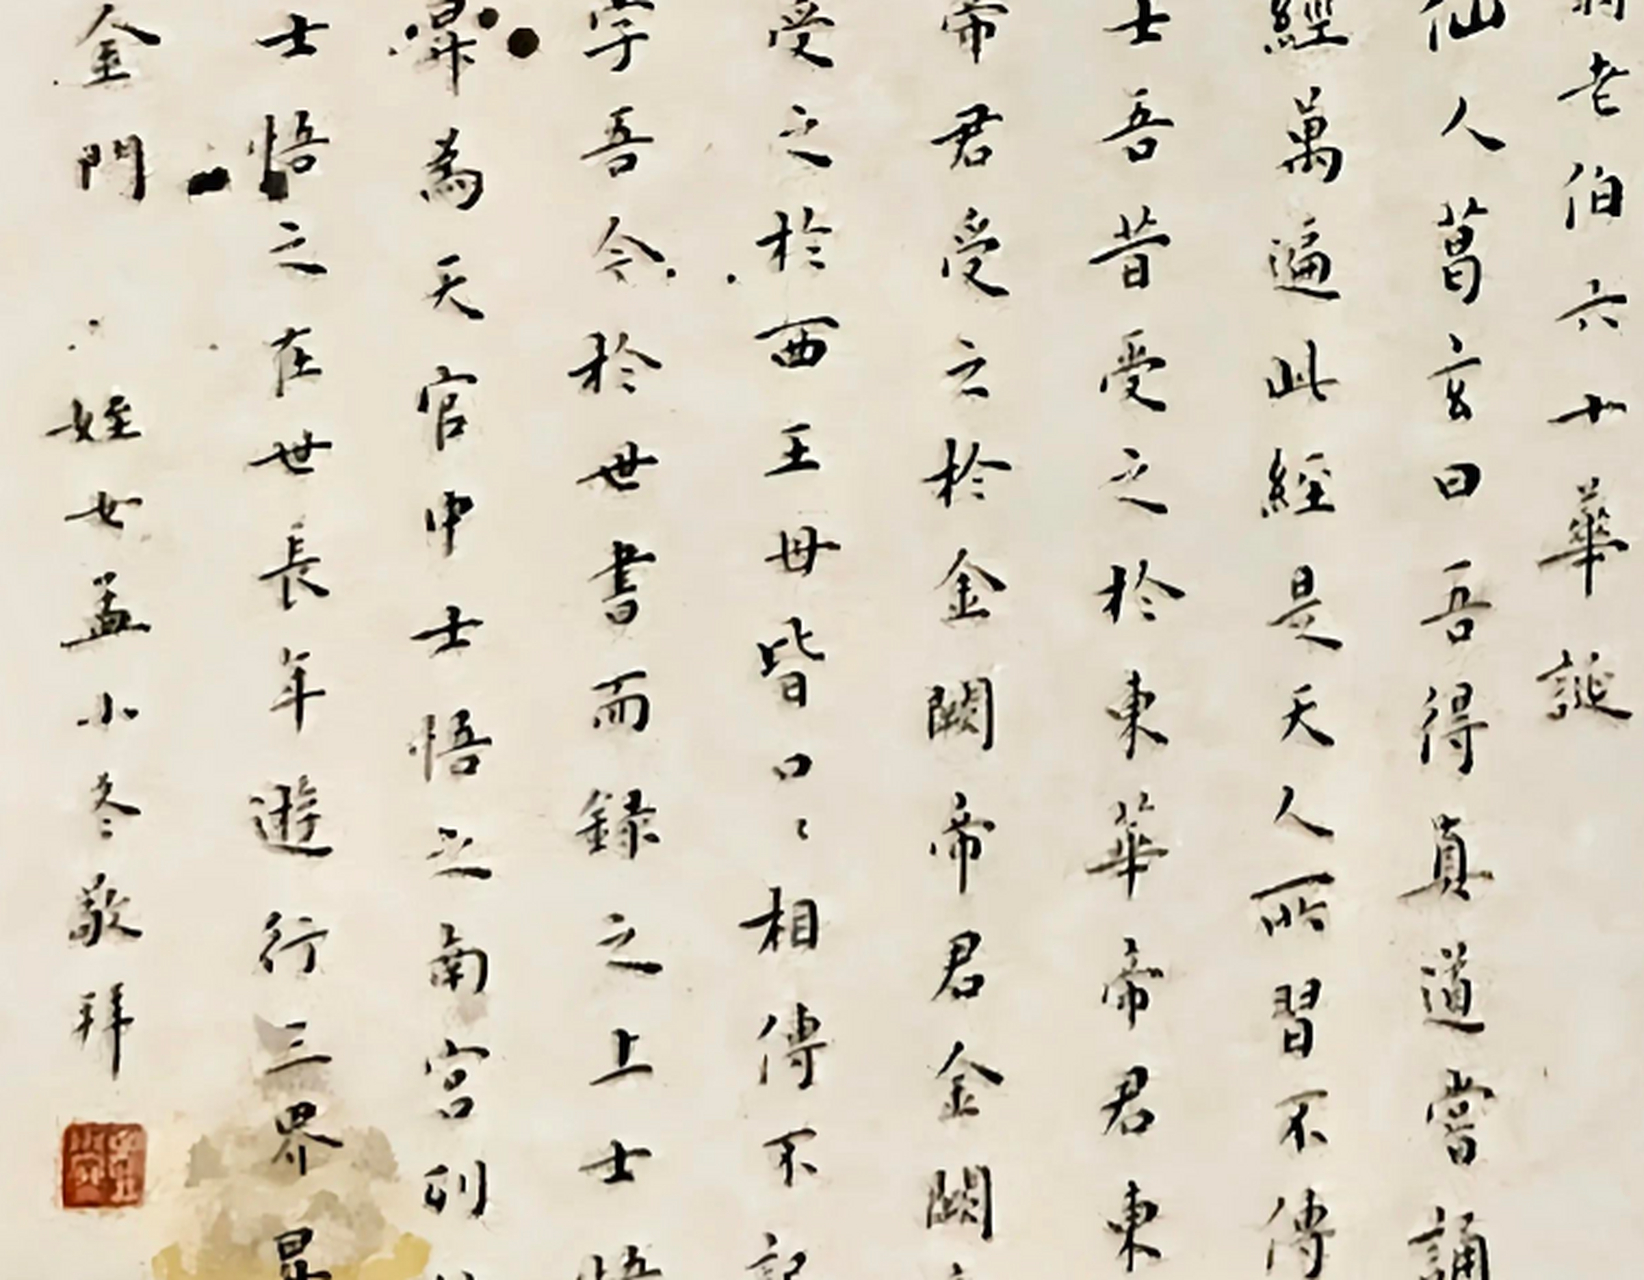 老伯六十華誕
仙人葛玄曰吾得真道當誦
經萬遍此經是天人所習不傳
士吾昔受之於東華帝君東
帝君受之於金闕帝君金闕
受之於西王母皆口〻相傳不記
字吾今於世書而録之上士悟
昇為天官中士悟之南宮列
士悟之在世長年遊行三界昇
金門 姪女孟小冬敬拜